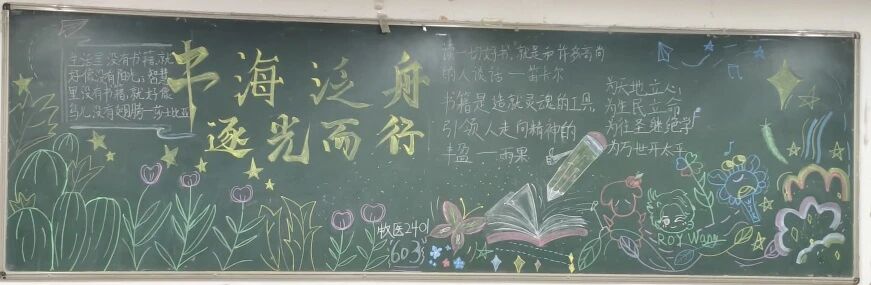 生活里没有书籍,就
好像没有阳光;智慧
里没有书籍,就好像
鸟儿没有翅膀—莎士比亚
书海泛舟
逐光而行
读一切好书,就是和许多高尚
的人谈话 —笛卡尔
书籍是造就灵魂的工具
引领人走向精神的
丰盈 —雨果
为天地立心
为生民立命
为往圣继绝学
为万世开太平
牧医2401
603
ROY Wang